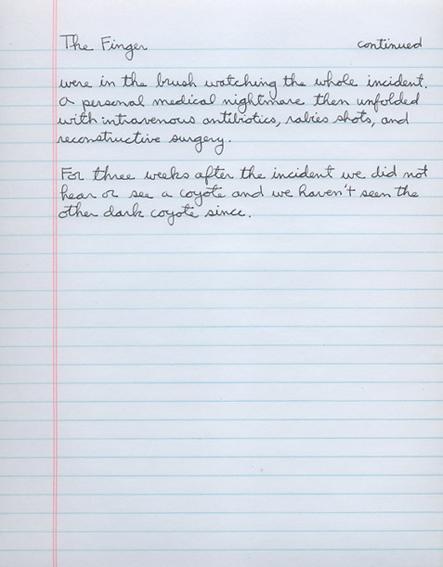 The Finger continued
were in the brush watching the whole incident.
A personal medical nightmare then unfolded
with intravenous antibiotics, rabies shots, and
reconstructive surgery.
For three weeks after the incident we did not
hear or see a coyote and we haven't seen the
other dark coyote since.